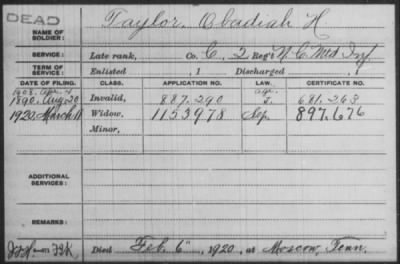 DEAD
NAME OF SOLDIER: Taylor, Obadiah H
SERVICE: Late rank, Co. C, 2 Reg't N.C. Mtd Inf.
TERM OF SERVICE: Enlisted , 1 Discharged , 1
DATE OF FILING. CLASS. APPLICATION NO. LAW. CERTIFICATE NO.
1908. Apr. 4 age
1890. Aug. 20 Invalid, 887.290 J. 681.263
1920. March 11 Widow, 1153978 897.676
Minor,
ADDITIONAL SERVICES:
REMARKS:
Died Feb. 6", 1920, at Moscow, Tenn.